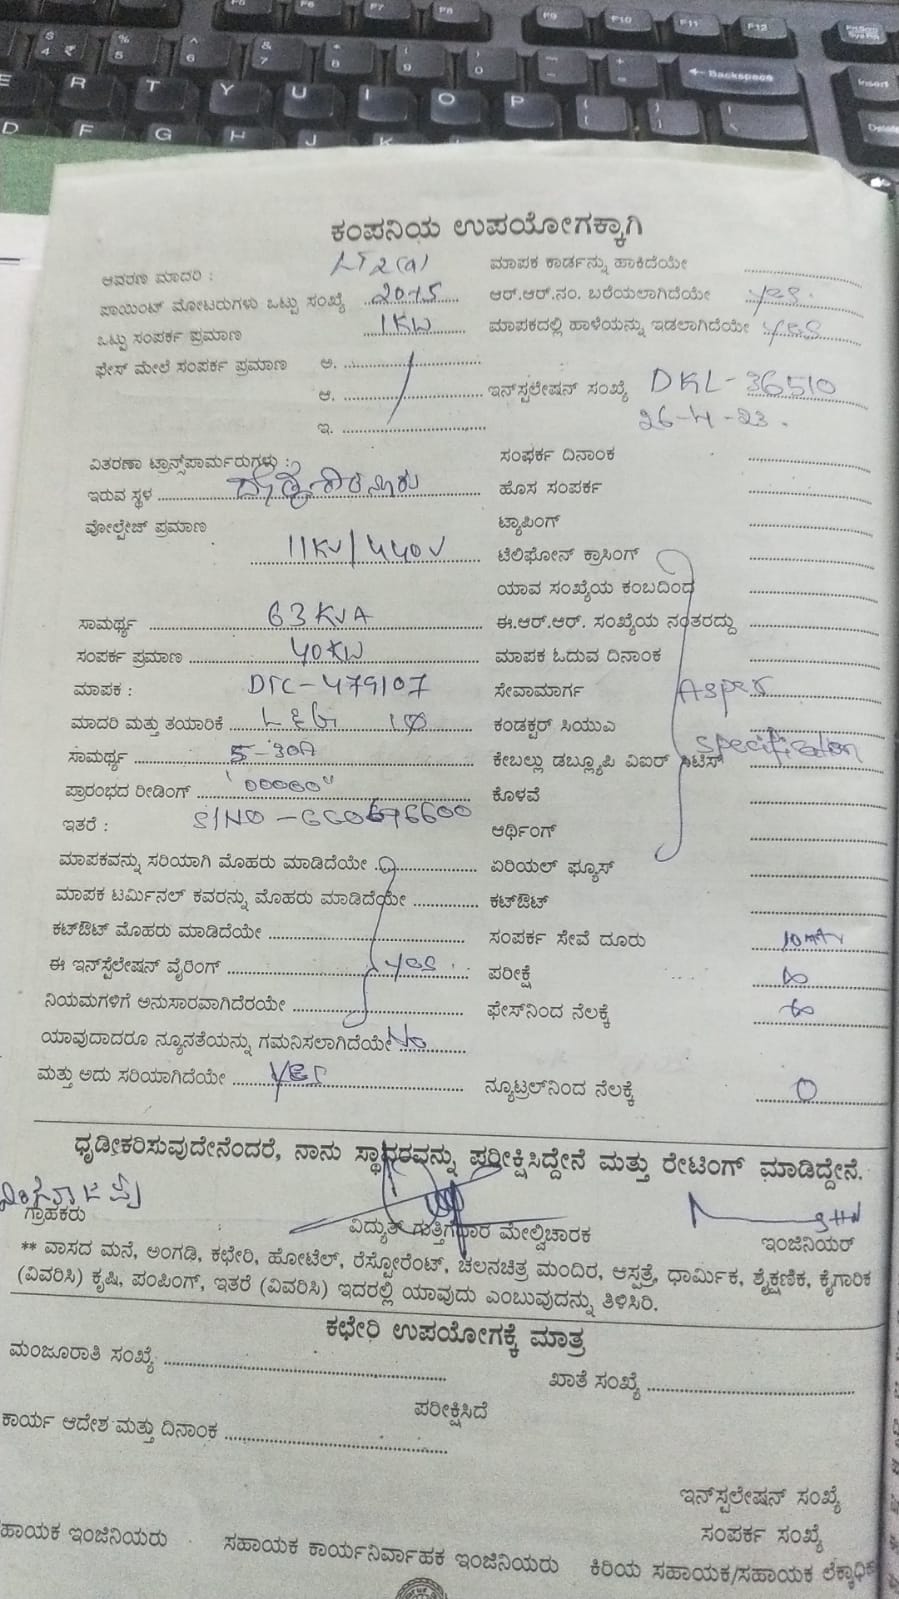 ಕಂಪನಿಯ ಉಪಯೋಗಕ್ಕಾಗಿ
ಆವರಣ ಮಾದರಿ : LT2(a)
ಪಾಯಿಂಟ್ ಮೋಟರುಗಳು ಒಟ್ಟು ಸಂಖ್ಯೆ 2015
ಒಟ್ಟು ಸಂಪರ್ಕ ಪ್ರಮಾಣ 1KW
ಫೇಸ್ ಮೇಲೆ ಸಂಪರ್ಕ ಪ್ರಮಾಣ ಅ.
ಆ.
ಇ.
ವಿತರಣಾ ಟ್ರಾನ್ಸ್‌ಪಾರ್ಮರುಗಳು :
ಇರುವ ಸ್ಥಳ
ವೋಲ್ಟೇಜ್ ಪ್ರಮಾಣ
11KV/440V
ಸಾಮರ್ಥ್ಯ 63KVA
ಸಂಪರ್ಕ ಪ್ರಮಾಣ 40KW
ಮಾಪಕ : DTC-479107
ಮಾದರಿ ಮತ್ತು ತಯಾರಿಕೆ L&G 1Ø
ಸಾಮರ್ಥ್ಯ 5-30A
ಪ್ರಾರಂಭದ ರೀಡಿಂಗ್ "00000"
ಇತರೆ : S/NO -
ಮಾಪಕವನ್ನು ಸರಿಯಾಗಿ ಮೊಹರು ಮಾಡಿದೆಯೇ
ಮಾಪಕ ಟರ್ಮಿನಲ್ ಕವರನ್ನು ಮೊಹರು ಮಾಡಿದೆಯೇ
ಕಟ್‌ಔಟ್ ಮೊಹರು ಮಾಡಿದೆಯೇ
ಈ ಇನ್‌ಸ್ಟಲೇಷನ್ ವೈರಿಂಗ್ yes.
ನಿಯಮಗಳಿಗೆ ಅನುಸಾರವಾಗಿದೆರಯೇ
ಯಾವುದಾದರೂ ನ್ಯೂನತೆಯನ್ನು ಗಮನಿಸಲಾಗಿದೆಯೇ No
ಮತ್ತು ಅದು ಸರಿಯಾಗಿದೆಯೇ YES
ಮಾಪಕ ಕಾರ್ಡನ್ನು ಹಾಕಿದೆಯೇ
ಆರ್.ಆರ್.ನಂ. ಬರೆಯಲಾಗಿದೆಯೇ yes.
ಮಾಪಕದಲ್ಲಿ ಹಾಳೆಯನ್ನು ಇಡಲಾಗಿದೆಯೇ YES
ಇನ್‌ಸ್ಟಲೇಷನ್ ಸಂಖ್ಯೆ DKL-36510
26-4-23.
ಸಂಘರ್ಕ ದಿನಾಂಕ
ಹೊಸ ಸಂಪರ್ಕ
ಟ್ಯಾಪಿಂಗ್
ಟೆಲಿಫೋನ್ ಕ್ರಾಸಿಂಗ್
ಯಾವ ಸಂಖ್ಯೆಯ ಕಂಬದಿಂದ
ಈ.ಆರ್.ಆರ್. ಸಂಖ್ಯೆಯ ನಂತರದ್ದು
ಮಾಪಕ ಓದುವ ದಿನಾಂಕ
ಸೇವಾಮಾರ್ಗ Asper
ಕಂಡಕ್ಟರ್ ಸಿಯುಎ specification
ಕೇಬಲ್ಲು ಡಬ್ಲ್ಯೂಪಿ ವಿಐರ್
ಕೊಳವೆ
ಆರ್ಥಿಂಗ್
ಏರಿಯಲ್ ಫ್ಯೂಸ್
ಕಟ್‌ಔಟ್
ಸಂಪರ್ಕ ಸೇವೆ ದೂರು
ಪರೀಕ್ಷೆ ∞
ಫೇಸ್‌ನಿಂದ ನೆಲಕ್ಕೆ ∞
ನ್ಯೂಟ್ರಲ್‌ನಿಂದ ನೆಲಕ್ಕೆ 0
ಧೃಡೀಕರಿಸುವುದೇನೆಂದರೆ, ನಾನು ಸ್ಥಾವರವನ್ನು ಪರೀಕ್ಷಿಸಿದ್ದೇನೆ ಮತ್ತು ರೇಟಿಂಗ್ ಮಾಡಿದ್ದೇನೆ.
ಗ್ರಾಹಕರು ವಿದ್ಯುತ್ ಗುತ್ತಿಗೆದಾರ ಮೇಲ್ವಿಚಾರಕ ಇಂಜಿನಿಯರ್
** ವಾಸದ ಮನೆ, ಅಂಗಡಿ, ಕಛೇರಿ, ಹೋಟೆಲ್, ರೆಸ್ಟೋರೆಂಟ್, ಚಲನಚಿತ್ರ ಮಂದಿರ, ಆಸ್ಪತ್ರೆ, ಧಾರ್ಮಿಕ, ಶೈಕ್ಷಣಿಕ, ಕೈಗಾರಿಕ
(ವಿವರಿಸಿ) ಕೃಷಿ, ಪಂಪಿಂಗ್, ಇತರೆ (ವಿವರಿಸಿ) ಇದರಲ್ಲಿ ಯಾವುದು ಎಂಬುವುದನ್ನು ತಿಳಿಸಿರಿ.
ಕಛೇರಿ ಉಪಯೋಗಕ್ಕೆ ಮಾತ್ರ
ಮಂಜೂರಾತಿ ಸಂಖ್ಯೆ ಖಾತೆ ಸಂಖ್ಯೆ
ಪರೀಕ್ಷಿಸಿದೆ
ಕಾರ್ಯ ಆದೇಶ ಮತ್ತು ದಿನಾಂಕ
ಇನ್‌ಸ್ಟಲೇಷನ್ ಸಂಖ್ಯೆ
ಸಂಪರ್ಕ ಸಂಖ್ಯೆ
ಹಾಯಕ ಇಂಜಿನಿಯರು ಸಹಾಯಕ ಕಾರ್ಯನಿರ್ವಾಹಕ ಇಂಜಿನಿಯರು ಕಿರಿಯ ಸಹಾಯಕ/ಸಹಾಯಕ ಲೆಕ್ಕಾಧಿಕ